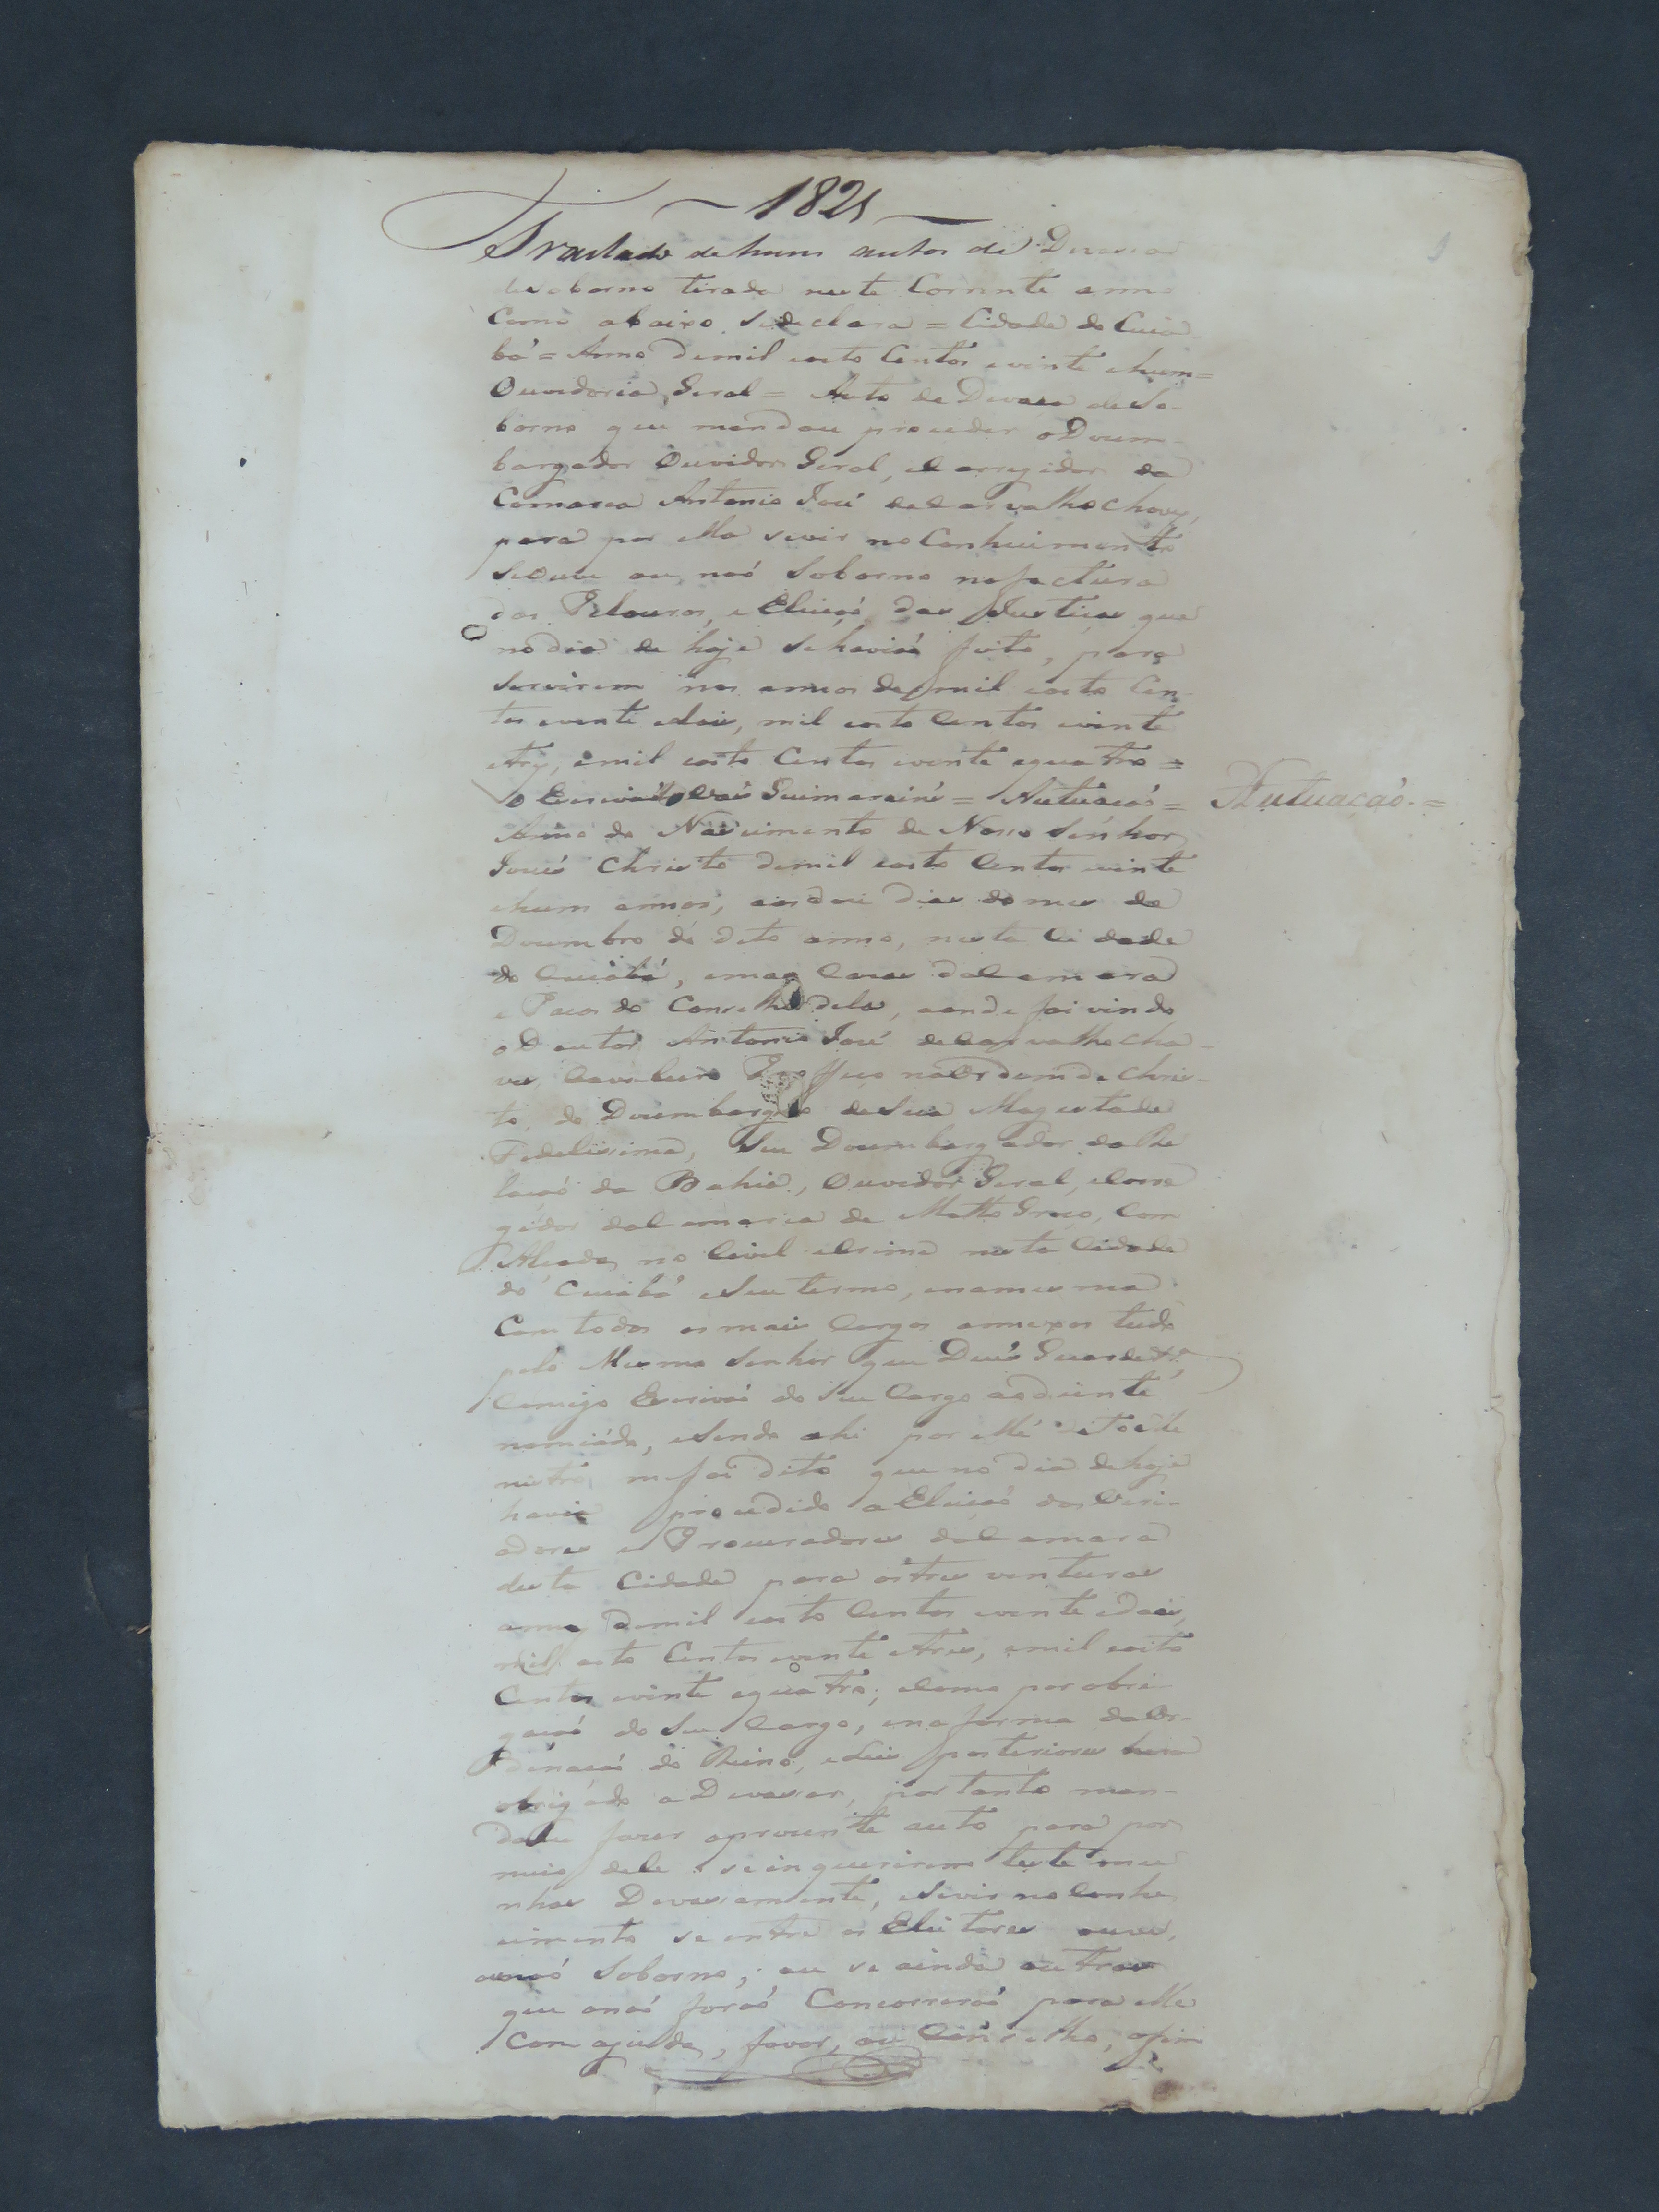 1821
Traslado de huns autos de Devassa
desoborno tirada neste Corrente anno
Como abaixo sedeclara = Cidade do Cuia
bá = Anno demil eoito Centos evinte ehum =
Ouvedoria Geral = Auto de Devassa deSo-
borno que mandou proceder oDezem-
bargador Ouvidor Geral, eCorregidor da
Comarca Antonio José deCarvalho Chaves,
para por ella sevir no Conhecimento
seouve ou naó Soborno nafactura
dos Pelouros, e Eleiçaó das Justiças que
nodia de hoje sehaviaó feito, para
Servirem nos annos demil eoito Cen-
tos evente edois, mil eoito Centos evinte
etres, emil eoito Centos evente equatro =
O Escrivaó Guimaraens = Autuacaó =
Autuacaó. =
Anno do Nascimento de Nosso Senhor
Jesus Christo demil eoito Centos evinte
ehum annos, aosdois dias do mes de
Dezembro do dito anno, nesta Cidade
do Cuiabá, emas Cazas daCamara
e Pacos do Conselho dela, aonde foi vindo
oDoutor Antonio José deCarvalho Cha-
ves, Cavaleiro Professo naOrdem de Chris-
to, do Dezembargo deSua Magestade
Fedelissima, Seu Dezembargador da Re
laçaó da Bahia, Ouvedor Geral, eCorre
gedor daComarca de Matto Grosso, Com
Alcada no Civel eCrime nesta Cidade
do Cuiabá eSeu termo, enamesma
Com todos os mais Cargos annexos tudo
pelo Mesmo Senhor que Deus Guarde &ª,
Comigo Escrivaó do Seu Cargo aodiente
nomiado, eSendo ahi por elle Menis
nistro me foi dito que no dia dehoje
havia procedido a Eleiçaó dos Veri-
adores e Procuradores daCamara
desta Cidade para ostres venturos
annos demil eoito Centos evente edois,
mil eoito Centos evente etres, emil eoito
Centos evinte equatro; eComo por obri-
gaçaó do Seu Cargo, ena forma daOr-
denacaó do Reino, eLeis posteriores hera
obrigado aDevassar, portanto man-
dava fazer aprezente auto para por
meio dele seinquerirem teste mu
nhas Devassamente, eSevir no Conhe
cimento se entre os Eleitores ouve,
ounaó Soborno; ou se ainda outros
que onaó foraó Concorreraó para elle
Com ajuda, favor, ou Conselho, afim